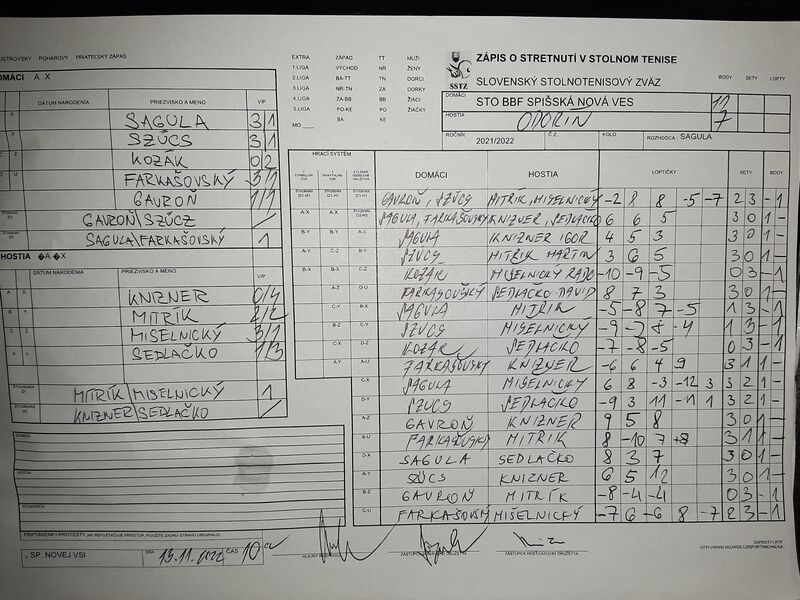 POHÁROVÝ PRIATEĽSKÝ ZÁPAS
DOMÁCI A X
DÁTUM NARODENIA PRIEZVISKO A MENO V/P
SAGULA 3/1
SZÜCS 3/1
KOZÁK 0/2
FARKAŠOVSKÝ 3/1
GAVROŇ 1/1
GAVROŇ\SZÜCZ /
SAGULA\FARKAŠOVSKÝ 1
HOSTIA �A �X
DÁTUM NARODENIA PRIEZVISKO A MENO V/P
KNIZNER 0/4
MITRÍK 2/2
MIŠELNICKÝ 3/1
SEDLAČKO 1/3
MITRÍK\MIŠELNICKÝ 1
KNIZNER\SEDLAČKO /
DOMÁCI
HOSTIA
ROZHODCA
PRIPOMIENKY/PROTESTY (AK NEPOSTAČUJE PRIESTOR, POUŽITE ZADNÚ STRANU ORIGINÁLU)
V SP. NOVEJ VSI DŇA 13.11.2022 ČAS 10
EXTRA ZÁPAD TT MUŽI
1.LIGA VÝCHOD NR ŽENY
2.LIGA BA-TT TN DORCI
3.LIGA NR-TN ZA DORKY
4.LIGA ZA-BB BB ŽIACI
5.LIGA PO-KE PO ŽIAČKY
MO BA KE
SSTZ
ZÁPIS O STRETNUTÍ V STOLNOM TENISE
SLOVENSKÝ STOLNOTENISOVÝ ZVÄZ BODY SETY LOPTY
DOMÁCI STO BBF SPIŠSKÁ NOVÁ VES 11
HOSTIA ODORÍN 7
ROČNÍK 2021/2022 Č.Z. KOLO ROZHODCA SAGULA
HRACÍ SYSTÉM DOMÁCI HOSTIA LOPTIČKY SETY BODY
GAVROŇ, SZÜCS MITRÍK, MIŠELNICKÝ -2 8 8 -5 -7 2 3 - 1
A-X A-X SAGULA, FARKAŠOVSKÝ KNIZNER, SEDLAČKO 6 6 5 3 0 1 -
B-Y B-Y A-X SAGULA KNIZNER IGOR 4 5 3 3 0 1 -
A-Y C-Z B-Y SZÜCS MITRÍK MARTIN 3 6 5 3 0 1 -
B-X B-X C-Z KOZÁK MIŠELNICKÝ RADO -10 -9 -5 0 3 - 1
A-Z D-U FARKAŠOVSKÝ SEDLAČKO DAVID 8 7 3 3 0 1 -
C-Y B-X SAGULA MITRÍK -5 -8 7 -5 1 3 - 1
B-Z C-Y SZÜCS MIŠELNICKÝ -9 -7 8 -4 1 3 - 1
C-X D-Z KOZÁK SEDLAČKO -7 -8 -5 0 3 - 1
A-Y A-U FARKAŠOVSKÝ KNIZNER -6 6 4 9 3 1 1 -
C-X SAGULA MIŠELNICKÝ 6 8 -3 -12 3 3 2 1 -
D-Y SZÜCS SEDLAČKO -9 3 11 -11 1 3 2 1 -
A-Z GAVROŇ KNIZNER 9 5 8 3 0 1 -
B-U FARKAŠOVSKÝ MITRÍK 8 -10 7 8 3 1 1 -
D-X SAGULA SEDLAČKO 8 3 7 3 0 1 -
A-Y SZÜCS KNIZNER 6 5 12 3 0 1 -
B-Z GAVROŇ MITRÍK -8 -4 -4 0 3 - 1
C-U FARKAŠOVSKÝ MIŠELNICKÝ -7 6 -6 8 -7 2 3 - 1
HLAVNÝ ROZHODCA ZÁSTUPCA DOMÁCEHO DRUŽSTVA ZÁSTUPCA HOSŤUJÚCEHO DRUŽSTVA